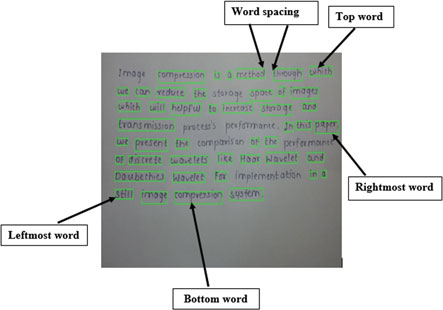 Word spacing
Top word
Image compression is a method through which
we can reduce the storage space of images
which will helpful to increase storage and
transmission process's performance. In this paper
we present the comparison of the performance
of discrete wavelets like Haar Wavelet and
Daubechies Wavelet for implementation in a
still image compression system.
Rightmost word
Leftmost word
Bottom word